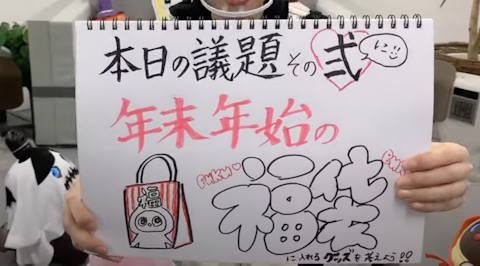 本日の議題その弐
に
年末年始の
福
FUKU
福袋
FUKU
に入れるグッズを考えよう!!